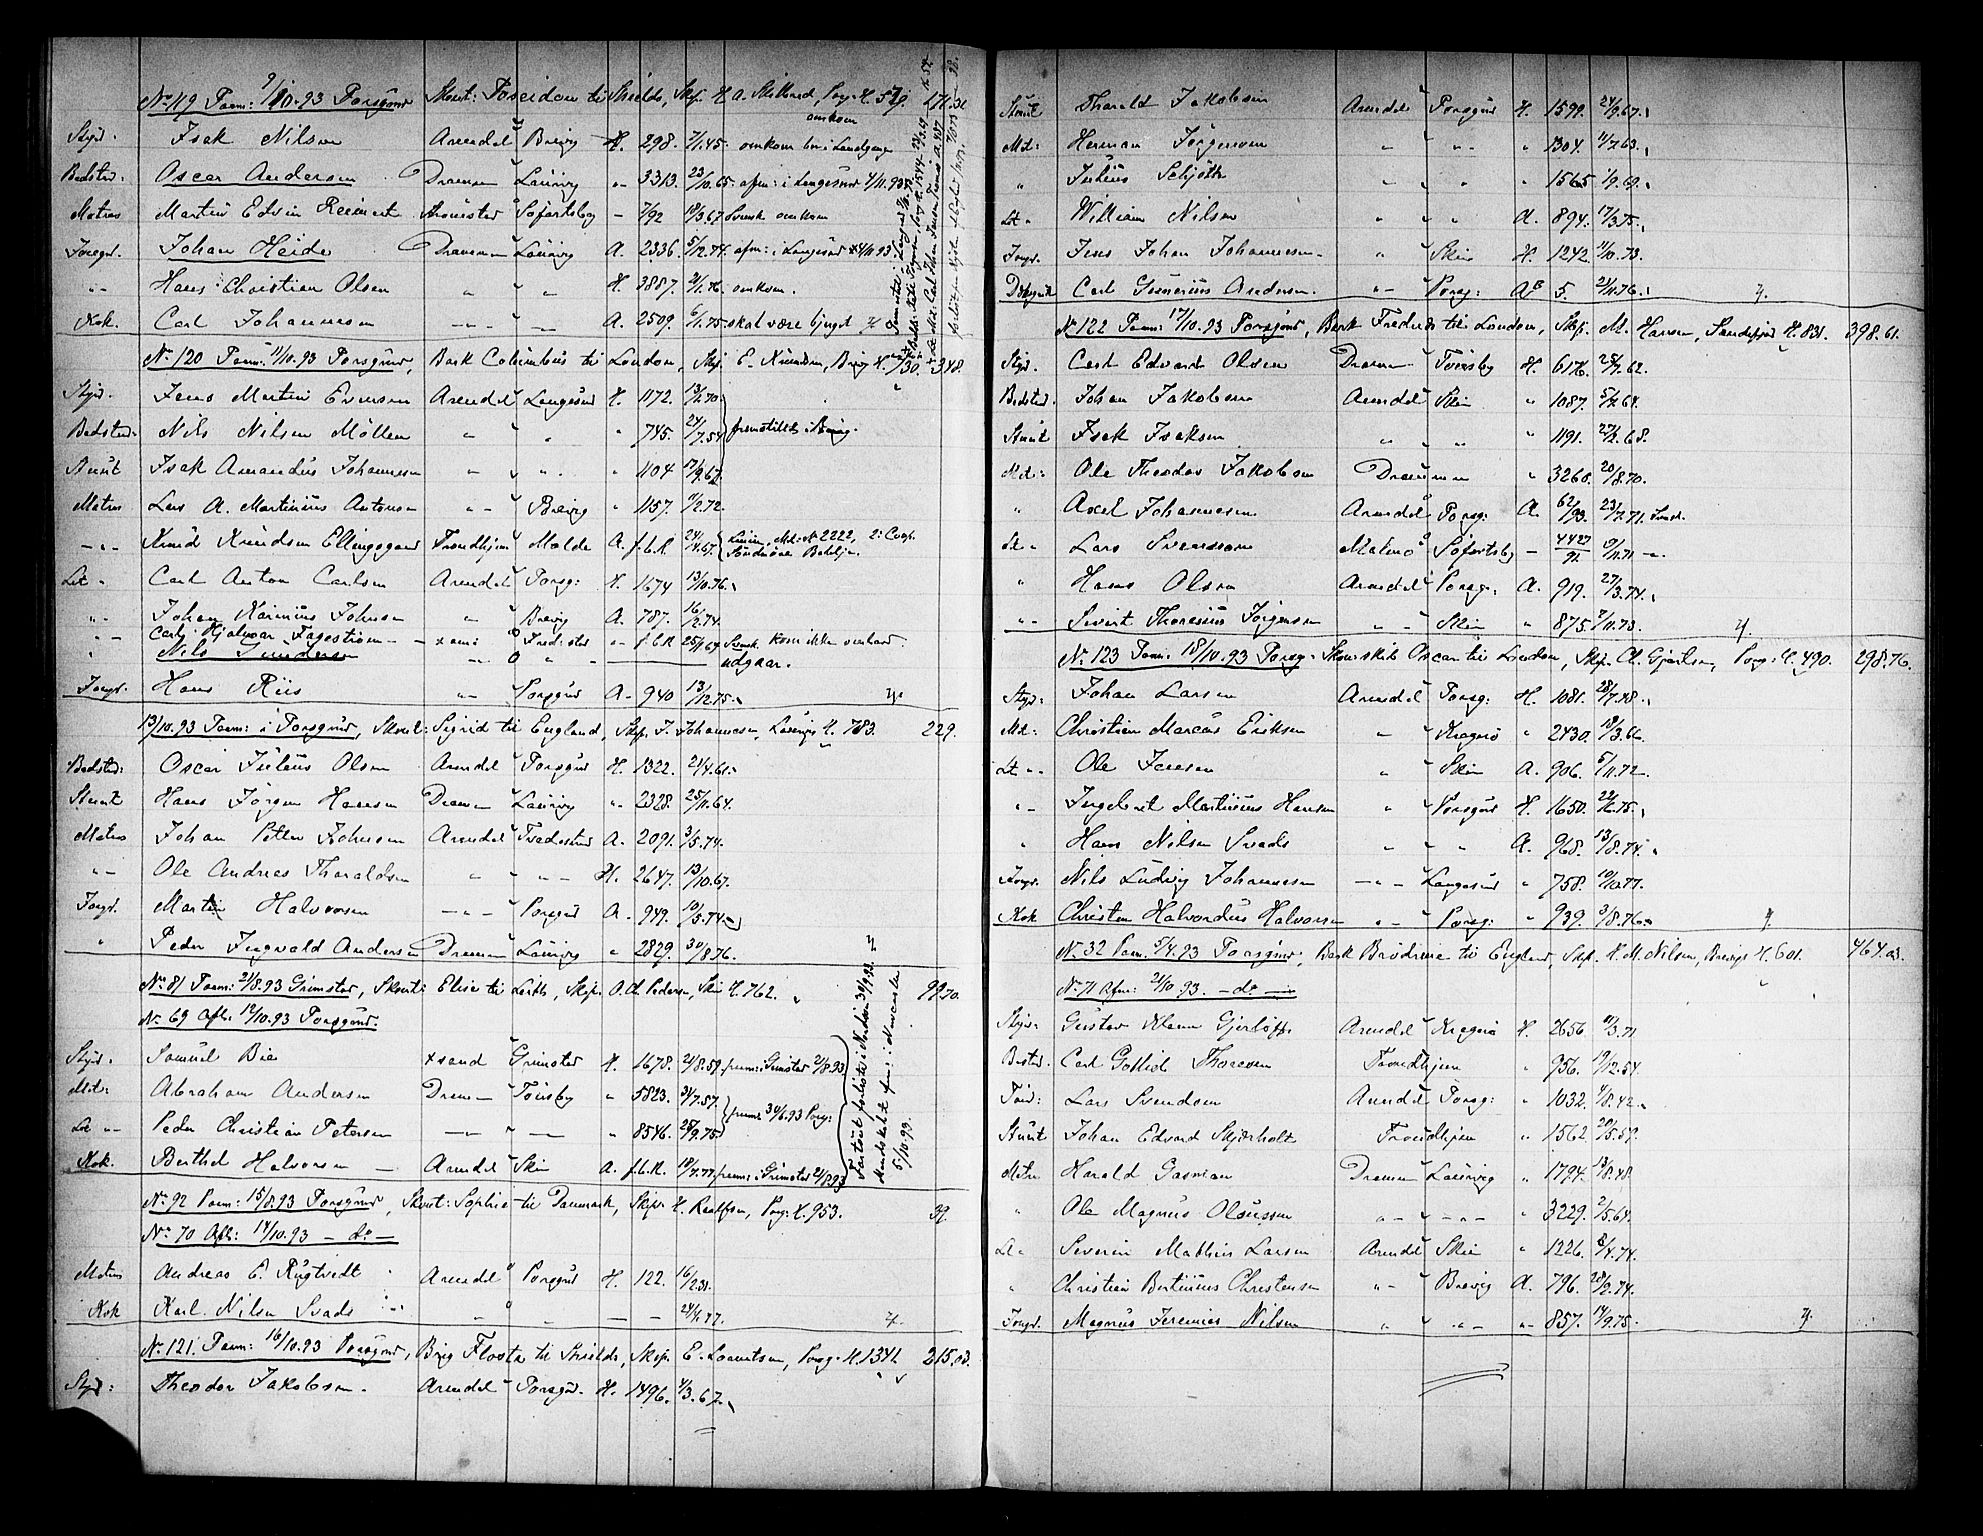 No 119 Paam: 9/10.93 Porsgrund Skonnt: Poseidon til Shields, Skp. H. A. , Porsg: H. 579. 271.31
omkom
Styrd. Isak Nilsen Arendal Brevig H. 298. 2/1.45. omkom
Bødstrd: Oscar Andersen Dramen Laurvig " 3313. 23/10.65. afm: i Langesund 4/11.93
Matros Martin Edvin Reinert Søfartsbog - 7/92 18/3.67 Svensk omkom
Jungd. Johan Heide Dramen Laurvig A. 2336. 5/12.74. afm: i Langesund 4/11.93
" Hans Christian Olsen " " H. 3887. 2/1.76. omkom.
Kok. Carl Johannesen " " A. 2509. 6/1.75. skal være bjerget
No 120 Paam: 11/10.93 Porsgrund, Bark Columbus til London, Skp. E. Knudsen, Brevig H. 30. 348.
Styd. Jens Martin Evensen Arendal Langesund H. 1172. 13/2.70.
Bødstrd: Nils Nilsen Möller " " " 745. 24/7.54 fremstillet i Brevig.
Stuert Isak Amandus Johannesen " " " 1104 17/9.67
Matros Lars A. Martinius Antonsen " Brevig " 1157. 11/2.72.
" Knud Knudsen Ellingsgaard Trondhjem Molde A. f.b.R. 24/4.67.
Let " Carl Anton Carlsen Arendal Porsg: H. 1674 13/10.76.
" Johan Marinius Johnsen " Brevig A. 787. 16/2.74.
" Carl Hjalmar Fagerström - xsand: Fred:stad " f.b.R 25/1.64 Svensk kom ikke ombord.
Nils Gundersen " " udgaar.
Jungd. Hans Riis " Porsgrund A. 940 13/12.75.
13/10.93 Paam: i Porsgrund, Skonnt: Sigrid til England, Skp. J. Johannesen, Laurvig H. 783. 229.
Bødstrd: Oscar Julius Olsen Arendal Porsgrund H. 1322. 21/4.61.
Stuert Hans Jörgen Hansen Dramen Laurvig " 2328. 25/11.64.
Matros Johan Petter Johnsen Arendal Tvedestrand A. 2091. 3/5.74.
" Ole Andreas Tharaldsen " " H. 2647. 13/10.67.
Jungd. Martin Halvorsen " Porsgrund A. 949. 10/5.74.
" Peder Ingvald Andersen Dramen Laurvig " 2829. 30/8.76.
No 81 Paam: 21/8.93 Grimstad, Skonnt: Elise til Leith, Skp. O. Chr. Pedersen, Skien H. 762. 99.70.
No 69 Afm: 12/10.93 Porsgrund.
Styrd. Samuel Bie xsand Grimstad H. 1678. 21/8.59. paam: i Grimstad 21/8.93.
Mat: Abraham Andersen Dramen Tönsby " 5823. 31/7.57. paam: 30/6.93 Porsg:
Let " Peder Christian Petersen " " " 8546. 25/9.75.
Kok. Berthel Halvorsen Arendal Skien A. f.b.R. 10/4.77. paam: i Grimstad 21/8.93
Fartöiet forlist i Nordsöen 30/9.93. Mandskabet afm: i Newcastle 5/10.93.
No 92 Paam: 15/8.93 Porsgrund, Skonnt: Sophie til Danmark, Skp. H. Realfsen, Porsg: H. 953. 39.
No 70 Afm: 14/10.93 - do -
Matros Andreas E. Rugtvedt Arendal Porsgrund H. 122. 16/2.31.
Kok Karl Nilsen Svads " " - - 24/4.77.
No 121. Paam: 16/10.93 Porsgrund, Brig Flora til Shields, Skp. E. Lorentsen, Porsg: H. 1341. 215.03.
Styd: Theodor Jakobsen. Arendal Porsgrd. H. 1496. 4/3.67.
Stuert Tharald Jakobsen Arendal Porsgrund H. 1599. 24/9.67.
Mat: Herman Jörgensen " " " 1304. 11/7.63.
" Julius Schjött " " " 1565 1/9.69.
Let " William Nilsen " " A. 894. 17/3.75.
Jungd. Jens Johan Johannesen " Skien H. 1242. 11/10.73.
Carl Gunerius Andersen " Porsg: 5. 21/11.76.
No 122 Paam: 17/10.93 Porsgrund, Bark til London, Skp. M. Hansen, Sandefjord H. 831. 398.61.
Styd. Carl Edvard Olsen Dramen Tönsby H. 6176. 28/7.62.
Bødstrd. Johan Jakobsen Arendal Skien " 1087. 5/2.64.
Stuert Isak Isaksen " " " 1191. 27/2.68.
Mat: Ole Theodor Jakobsen Dramen " 3260. 20/8.70.
" Axel Johannesen Arendal Porsg: A. 62/93. 23/7.71.
Let " Lars Svensson Malmö Søfartsbog - 4427/92. 9/11.71
" Hans Olsen Arendal Porsg: A. 919. 27/3.74.
" Sivert Thorenius Jörgensen " Skien " 875. 7/11.73.
No 123 Paam. 18/10.93 Porsg: Skonskib Oscar til London, Skp. Ch. Gjertsen, Porsg: H. 490. 298.76.
Styd: Johan Larsen Arendal Porsg: H. 1081. 28/7.48.
Mat: Christian Marcus Eriksen " Kragerö " 2430. 10/3.66.
Let " Ole Jensen " Skien A. 906. 5/11.72.
" Ingebret Martinius Hansen " Porsgrund H. 1650. 22/12.75.
" Hans Nilsen Svads " " A. 968. 13/8.74.
Jungd. Nils Ludvig Johannesen " Langesund " 758. 10/10.77.
Kok Christen Halvordus Halvorsen " Porsg: " 939. 3/8.76.
No 32 Paam. 5/4.93 Porsgrund, Bark Brödrene til England, Skp. H. M. Nilsen, Brevig H. 601. 464.03.
No 71 Afm: 21/10.93. - do -
Styd: Gustav Klem Gjerlöff Arendal Kragerö H. 2656. 11/3.71
Bøstrd. Carl Gotlieb Thoresen Trondhjem " 936. 19/12.54.
Töm: Lars Svendsen Arendal Porsg: " 1032. 4/8.42.
Stuert Johan Edvard Skjærholt Trondhjem " 1562. 20/5.59.
Mat: Harald Gasman Dramen Laurvig " 1794. 13/8.48.
" Ole Magnus Olaussen " " " 3229. 2/5.64.
Let " Severin Mathias Larsen Arendal Skien " 1226. 8/4.74.
" Christian Bertinius Christensen " Brevig A. 796. 28/2.74.
Jungd. Magnus Jeremias Nilsen " " " 857. 14/9.75.